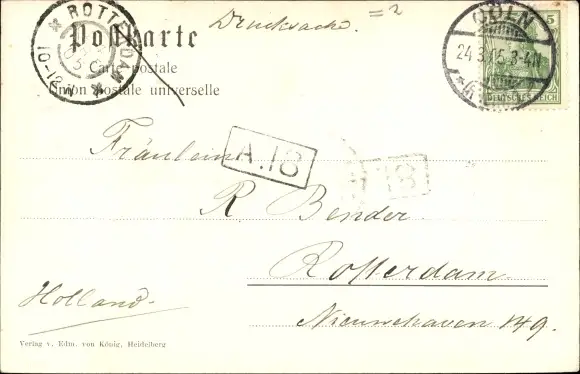 Drucksache.
= 2
Postkarte
Carte postale
Union postale universelle
ROTTERDAM
10-12
CÖLN
24.3.05.3-4N
5
DEUTSCHES REICH
A.18
8
Fräulein
R Bender
Rotterdam
Holland.
Nieuwehaven 149.
Verlag v. Edm. von König, Heidelberg